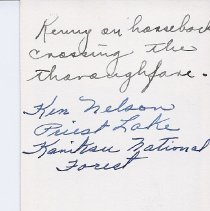 Kenny on horseback
crossing the
thoroughfare.
Ken Nelson
Priest Lake
Kaniksu National
Forest